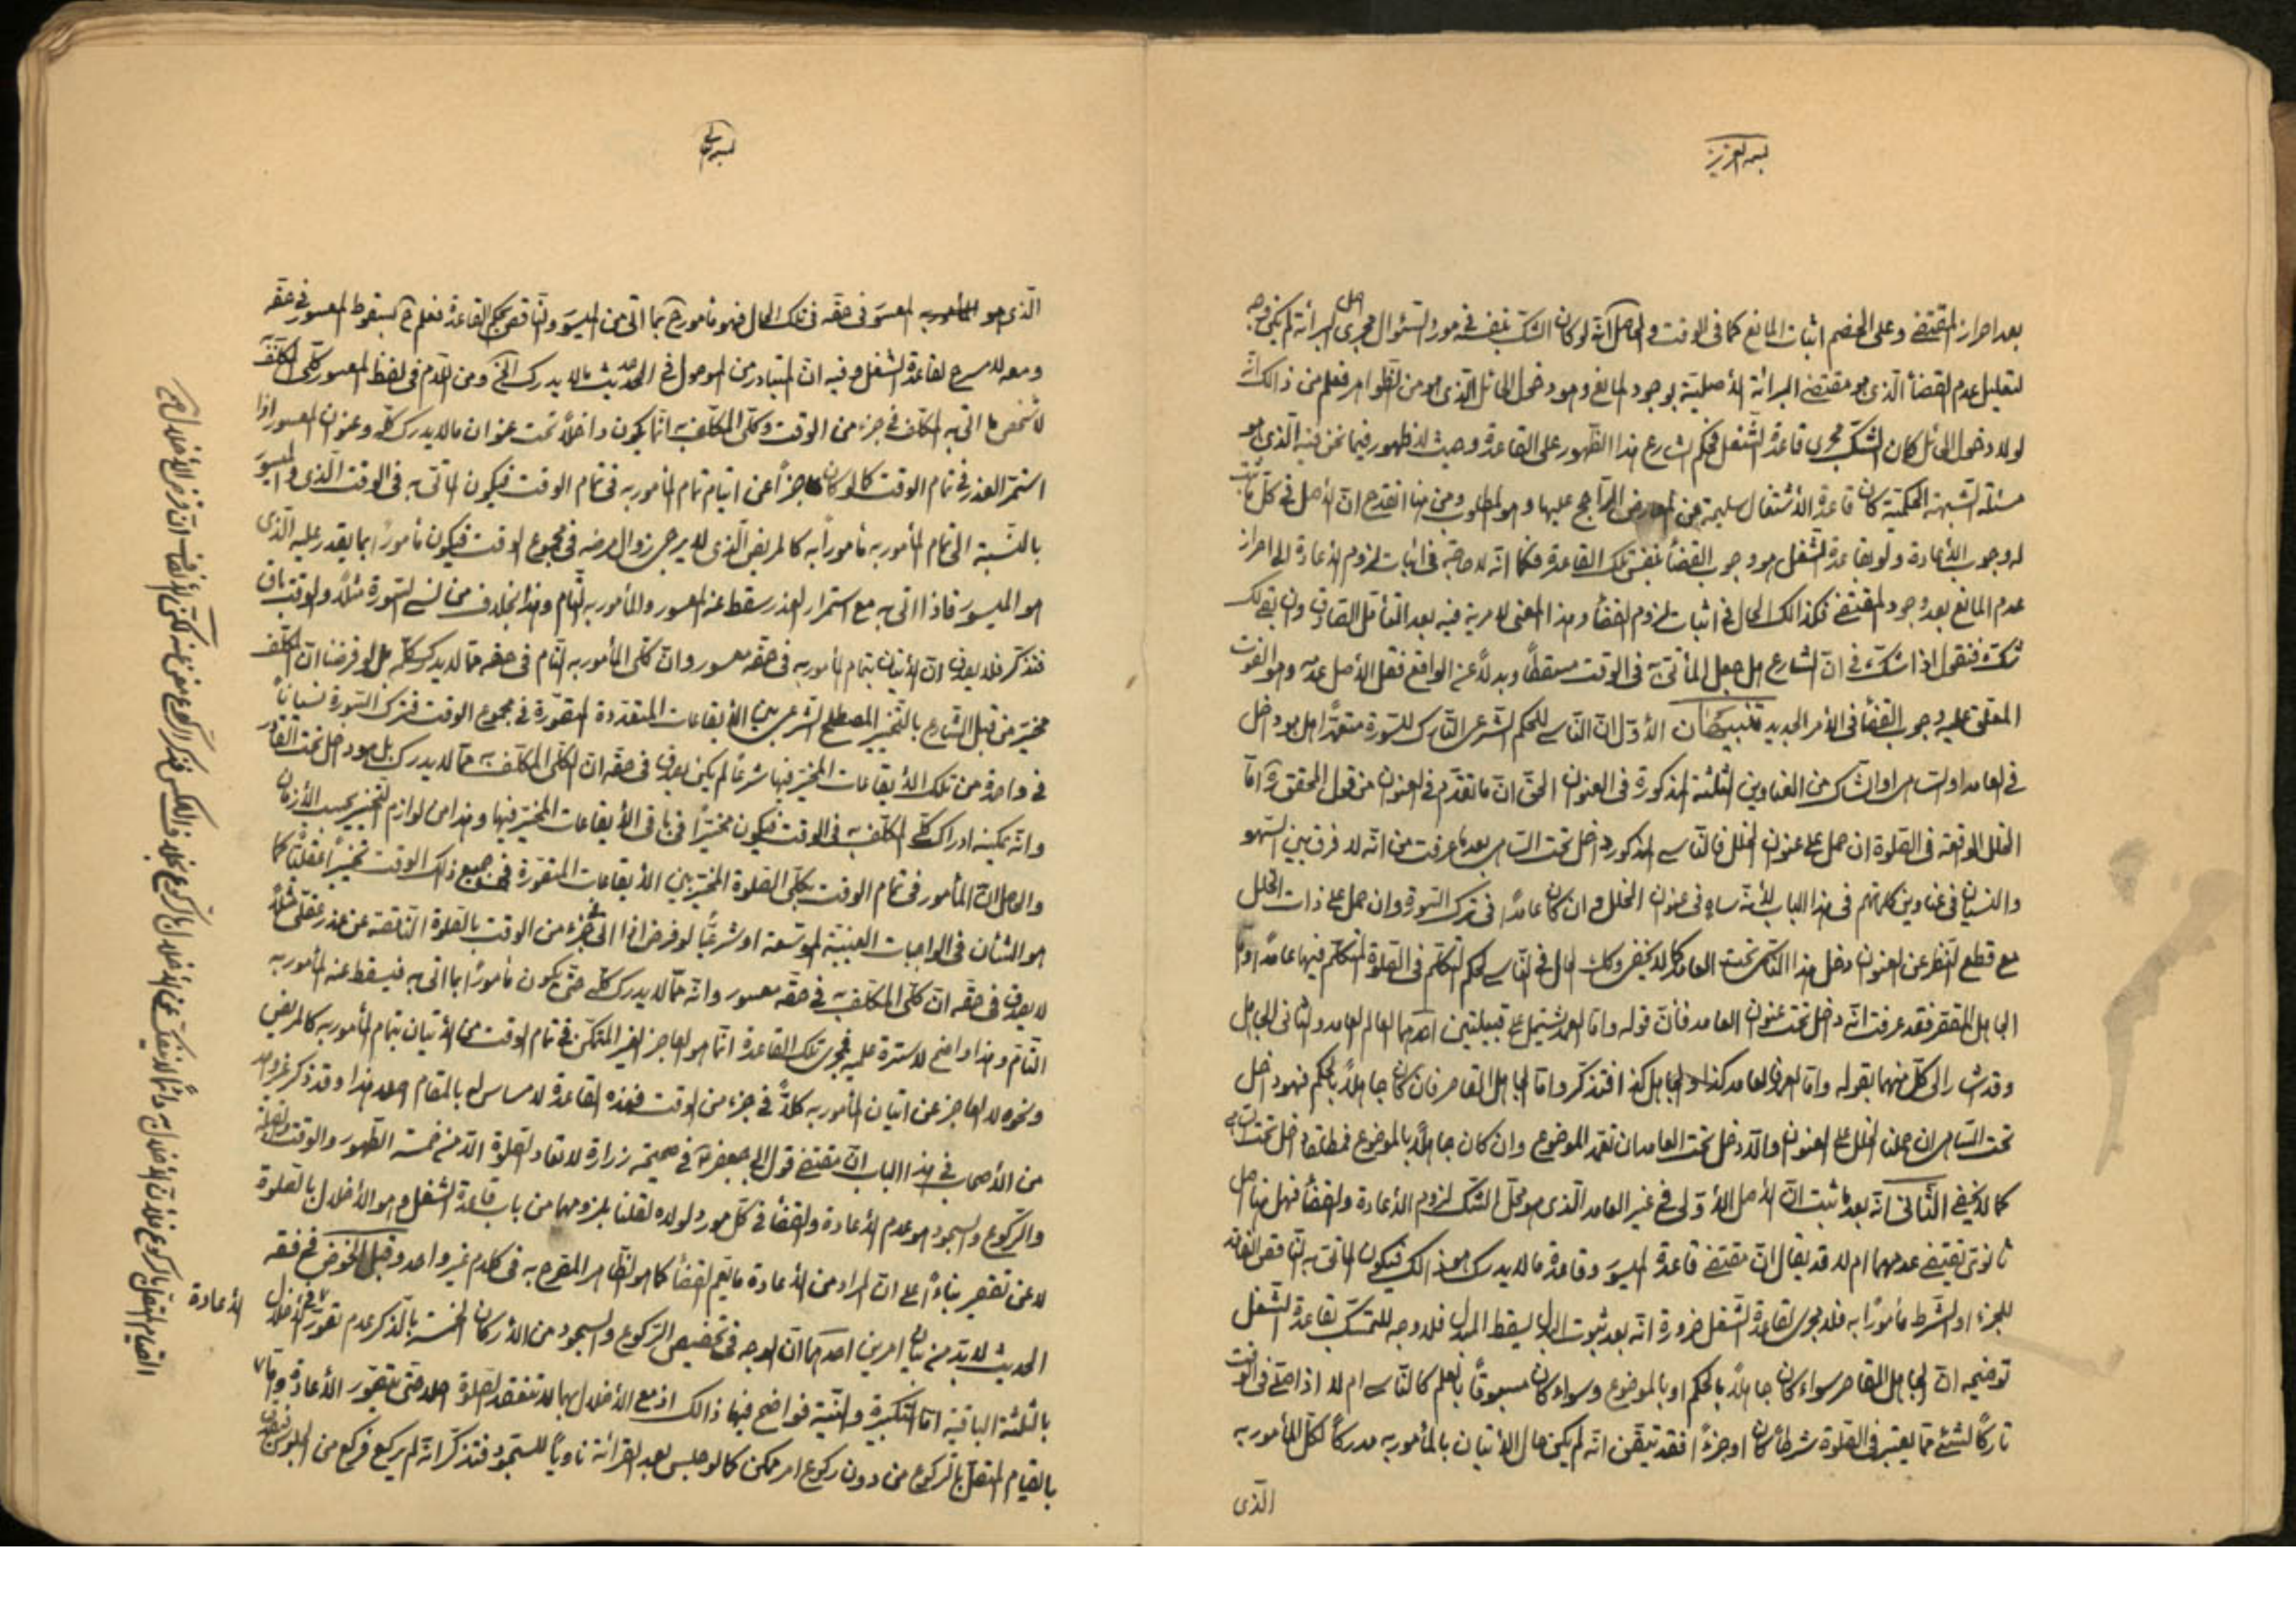 بسمه العزيز
بعد احراز المقتضى وعلى الخصم اثبات المانع كما فى الوقت والحاصل انّه لو كان الشك بنفسه فى مورد السئوال مجرى اصل البرائة لم يكن وجه
لتعليل عدم القضأ الّذى هو مقتضى البرائة الأصليّة بوجود المانع وهو دخول الحائل الّذى هو من الظواهر فعلم من ذالك انّه
لولا دخول الحائل كان الشكّ مجرى قاعدة الشّغل فحكم الشارع بهذا الظهور على القاعدة وحيث لا ظهور فيما نحن فيه الّذى هو
مسئلة الشّبهة الحكميّة كان قاعدة الأشتغال سليمة عن المعارض الرّاجح عليها وهو المطلوب ومن هنا انقدح انّ الأصل فى كل ما ثبت
له وجوب الأعادة ولو بقاعدة الشّغل هو وجوب القضأ بنفس تلك القاعدة فكما انّه لا حاجة فى اثبات لزوم الأعادة الى احراز
عدم المانع بعد وجود المقتضى فكذالك الحال فى اثبات لزوم القضأ وهذا المعنى لا مرية فيه بعد التّأمّل الصّادق وان بقى لك
شكّ فنقول اذا شكّ فى انّ الشارع هل جعل المأتىّ به فى الوقت مسقطاً وبدلاً عن الواقع فقل الأصل عدمه وهو الفوت
المعلّق عليه وجوب القضأ فى الأمر الجديد تنبيهان الأوّل انّ النّاسى للحكم الشّرعى التّارك للسّورة متعمّداً هل هو داخل
فى العامد او السّاهى او الشّاك من العناوين الثّلثة المذكورة فى العنوان الحقّ انّ ما تقدّم فى العنوان من قول المحقق ره امّا
الخلل الواقعة فى الصّلوة ان حمل على عنوان الخلل فالنّاسى المذكور داخل تحت السّاهى بعد ما عرفت من انّه لا فرق بين السّهو
والنسيان فى عناوين كلماتهم فى هذا الباب لأنّه ساهٍ فى عنوان الخلل وان كان عامداً فى ترك السّورة وان حمل على ذات الخلل
مع قطع النّظر عن العنوان دخل هذا النّاسى تحت العامد كما لا يخفى وكك الحال فى النّاسى لحكم التّكلّم فى الصّلوة المتكلّم فيها عامداً وامّا
الجاهل المقصّر فقد عرفت انّه داخل تحت عنوان العامد فانّ قوله وامّا العمد يشتمل على قبيلتين احدهما العالم العامد والثانى الجاهل
وقد اشار الى كلّ منهما بقوله وامّا العالم العامد كذا والجاهل كذا فتذكّر وامّا الجاهل القاصر فان كان جاهلاً بالحكم فهو داخل
تحت السّاهى ان حملنا الخلل على العنوان والّا دخل تحت العامد ان تعمّد الموضوع وان كان جاهلاً بالموضوع فمطلقا داخل تحت السّاهى
كما لا يخفى الثّانى انّه بعد ما ثبت انّ الأصل الأوّلى فى غير العامد الّذى هو محلّ الشكّ لزوم الأعادة والقضأ فهل هنا اصل
ثانوىّ يقتضى عدمهما ام لا قد يقال انّ مقتضى قاعدة الميسور وقاعدة ما لا يدرك هو ذالك فيكون المأتىّ به النّاقص الفاقد
للجزء او الشّرط مأموراً به فلا مجرى لقاعدة الشّغل ضرورة انّه بعد ثبوت البدل يسقط المبدل فلا وجه للتمسّك بقاعدة الشّغل
توضيحه انّ الجاهل القاصر سواء كان جاهلاً بالحكم او بالموضوع وسواء كان مسبوقاً بالعلم كالنّاسى ام لا اذا صلّى فى الوقت
تاركاً لشئ ممّا يعتبر فى الصّلوة شرطاً كان اوجزءً افقد تيقّن انّه لم يكن حال الأتيان بالمأمور به مدركاً لكلّ المأمور به
الّذى
بسمه تعالى
الّذى هو المعسور فى حقّه فى تلك الحال فهو مأمور ح بما اتى من الميسور والنّاقص بحكم القاعدة فعلم ح سقوط المعسور فى حقه
ومعه لا مسرح لقاعدة الشّغل وفيه انّ المتبادر من الموصول فى الحديث ما لا يدرك الخ ومن اللّام فى لفظ المعسور كلّى المكلّف به
لا شخص ما اتى به المكلّف فى جزء من الوقت وكلّى المكلّف به انّما يكون داخلاً تحت عنوان ما لا يدرك كلّه وعنوان المعسور اذا
استمرّ العذر فى تمام الوقت كما لو كان عاجزاً عن اتيان تمام المأمور به فى تمام الوقت فيكون المأتىّ به فى الوقت الّذى هو الميسور
بالنّسبة الى تمام المأمور به مأموراً به كالمريض الّذى لا يرجى زوال مرضه فى مجموع الوقت فيكون مأموراً بما يقدر عليه الّذى
هو الميسور فاذا اتى به مع استمرار العذر سقط عنه المعسور والمأمور به التّام وهذا بخلاف من نسى السّورة مثلاً والوقت باق
فتذكّر فلا يصدق انّ الأتيان بتمام المأمور به فى حقّه معسور وانّ كلّى المأمور به التّام فى حقه ممّا لا يدرك كلّه بل لو فرضنا انّ المكلّف
مخيّر من قبل الشّارع بالتّخيير المصطلح الشّرعى بين الأيقاعات المتعدّدة المتصوّرة فى مجموع الوقت فترك السّورة نسياناً
فى واحدة من تلك الأيقاعات المخيّر فيها شرعاً لم يكن يصدق فى حقّه انّ الكلّى المكلّف به ممّا لا يدرك بل هو داخل تحت القادر
وانّه يمكنه ادراك كلّى المكلّف به فى الوقت فيكون مخيّراً فى باقى الأيقاعات المخيّر فيها وهذا من لوازم التّخيير بحسب الأزمان
والحاصل انّ المأمور فى تمام الوقت بكلّى الصّلوة المخيّر بين الأيقاعات المتصوّرة فى جميع ذلك الوقت تخييراً عقليّاً كما
هو الشّأن فى الواجبات العينيّة الموسّعة او شرعيّاً لو فرض اذا اتى فى جزء من الوقت بالصّلوة النّاقصة عن عذر عقلى مثلاً
لا يصدق فى حقّه انّ كلّى المكلّف به فى حقّه معسور وانّه ممّا لا يدرك كلّه حتّى يكون مأموراً بما اتى به فيسقط عنه المأمور به
التّام وهذا واضح لا سترة عليه فمجرى تلك القاعدة انّما هو العاجز الغير المتمكّن فى تمام الوقت من الأتيان بتمام المأمور به كالمريض
ونحوه لا العاجز عن اتيان المأمور به كلاً فى جزء من الوقت فهذه القاعدة لا مساس له بالمقام اصلا هذا وقد ذكر غير واحد
من الأصحاب فى هذا الباب انّ مقتضى قول ابى جعفر ع فى صحيحة زرارة لا تعاد الصّلوة الّا من خمسة الطّهور والوقت والقبلة
والرّكوع والسجود هو عدم الأعادة والقضأ فى كلّ مورد لولاه لقلنا بلزومهما من باب قاعدة الشّغل وهو الأخلال بالصّلوة
لا عن تقصير بناءً على انّ المراد من الأعادة ما يعمّ القضأ كما هو الظّاهر المصّرح به فى كلام غير واحد وقبل الخوض فى فقه
الحديث لا بدّ من بيان امرين احدهما انّ الوجه فى تخصيص الرّكوع والسجود من الأركان الخمسة بالذّكر عدم تصوّر الأعادة فى الأخلال
بالثّلثة الباقية امّا التّكبيرة والنيّة فواضح فيها ذالك اذ مع الأخلال بهما لا تنعقد الصّلوة اصلا حتى يتصوّر الأعادة وامّا
بالقيام المتّصل بالرّكوع من دون ركوع امر ممكن كما لو جلس بعد القرائة ناوياً للسّجود فتذكّر انّه لم يركع فركع من الجلوس
القيام المتّصل بالرّكوع فلأنّ الأخلال به دائماً لا ينفكّ عن الأخلال بالرّكوع بخلاف العكس